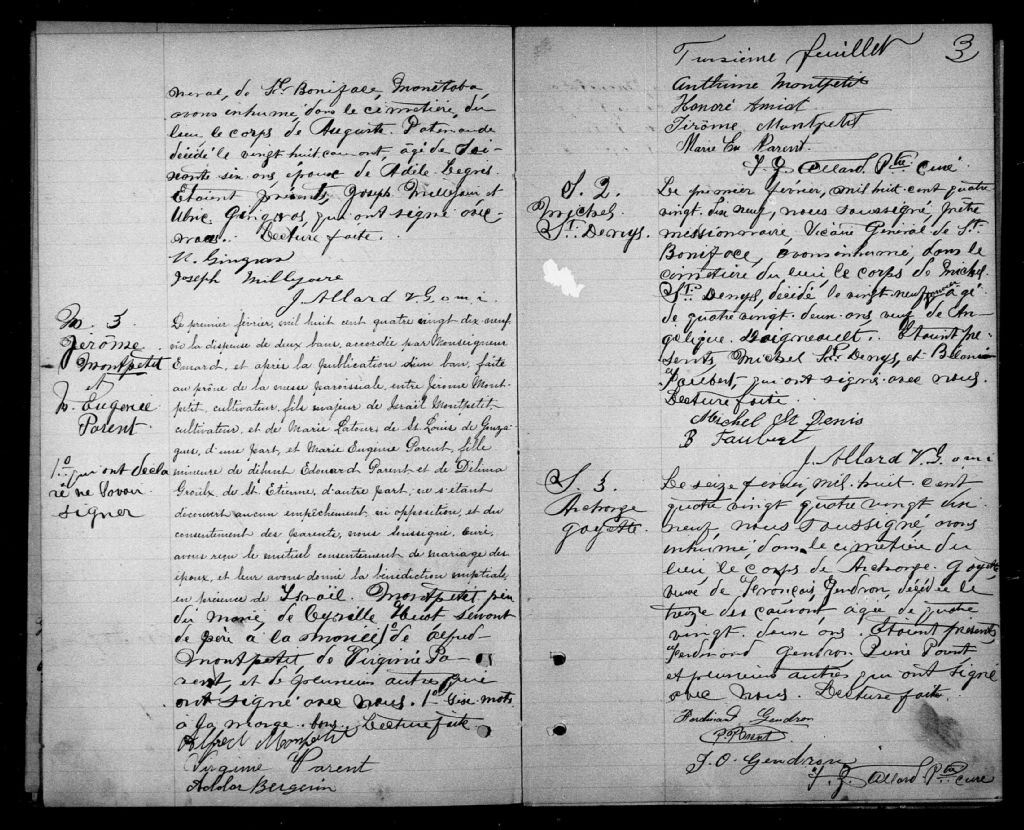 néral, de St. Boniface, Manitoba
avons inhumé, dans le cimetière du
lieu le corps de Auguste
décédé le vingt huit courant, âgé de soi-
xante six ans époux de Adèle Legris.
Etaient présents, Joseph Millejour et
Ulric Gingras, qui ont signé avec
nous. Lecture faite.
U. Gingras
Joseph Milljoure
J. Allard V. G. o m i.
M. 3
Jérôme
Montpetit
et
M. Eugénie
Parent
1º qui ont décla
ré ne savoir
signer
Le premier février, mil huit cent quatre vingt dix-neuf
vu la dispense de deux bans, accordée par Monseigneur
Emard, et après la publication d'un ban, faite
au prône de la messe paroissiale, entre Jérôme Mont-
petit, cultivateur, fils majeur de Israël Montpetit,
cultivateur, et de Marie Latour, de St. Louis de Gonza-
gues, d'une part, et Marie Eugénie Parent, fille
mineure de défunt Edouard Parent et de Délima
Groulx, de St. Etienne, d'autre part, ne s'étant
découvert aucun empêchement, ni opposition, et du
consentement des parents, nous soussigné, curé,
avons reçu le mutuel consentement de mariage des
époux, et leur avons donné la bénédiction nuptiale,
en présence de Israël Montpetit père
du marié, de Cyrille Huot servant
de père à la mariée, 1º de Alfred
Montpetit, de Virginie Pa-
rent, et de plusieurs autres qui
ont signé avec nous. 1º Six mots
à la marge bons. Lecture faite
Alfred Montpetit
Virginie Parent
Addor Bergevin
Troisième feuillet
3
Anthime Montpetit
Honoré Amiot
Jérôme Montpetit
Marie Eu Parent.
J. J. Allard Ptre curé
S. 2.
Michel
St. Denys.
Le premier février, mil huit cent quatre
vingt dix neuf, nous soussigné, prêtre
missionnaire, Vicaire Général de St.
Boniface, avons inhumé, dans le
cimetière du lieu le corps de Michel
St. Denys, décédé le vingt neuf janvier âgé
de quatre vingt deux ans veuf de An-
gélique Daigneault. Etaient pré-
sents, Michel St. Denys, et
Faubert, qui ont signé avec nous.
Lecture faite
Michel St Denis
B Faubert
J. Allard V. G. o m i
S. 3.
Archange
Goyette.
Le seize février, mil huit cent
quatre vingt quatre vingt dix
neuf, nous soussigné, avons
inhumé, dans le cimetière du
lieu le corps de Archange Goyette
veuve de François Gendron, décédée le
treize du courant, âgée de quatre
vingt deux ans. Etaient présents
Ferdinand Gendron Parent
et plusieurs autres qui ont signé
avec nous. Lecture faite.
Ferdinand Gendron
P. Parent
J. O. Gendron
J. J. Allard Ptre curé